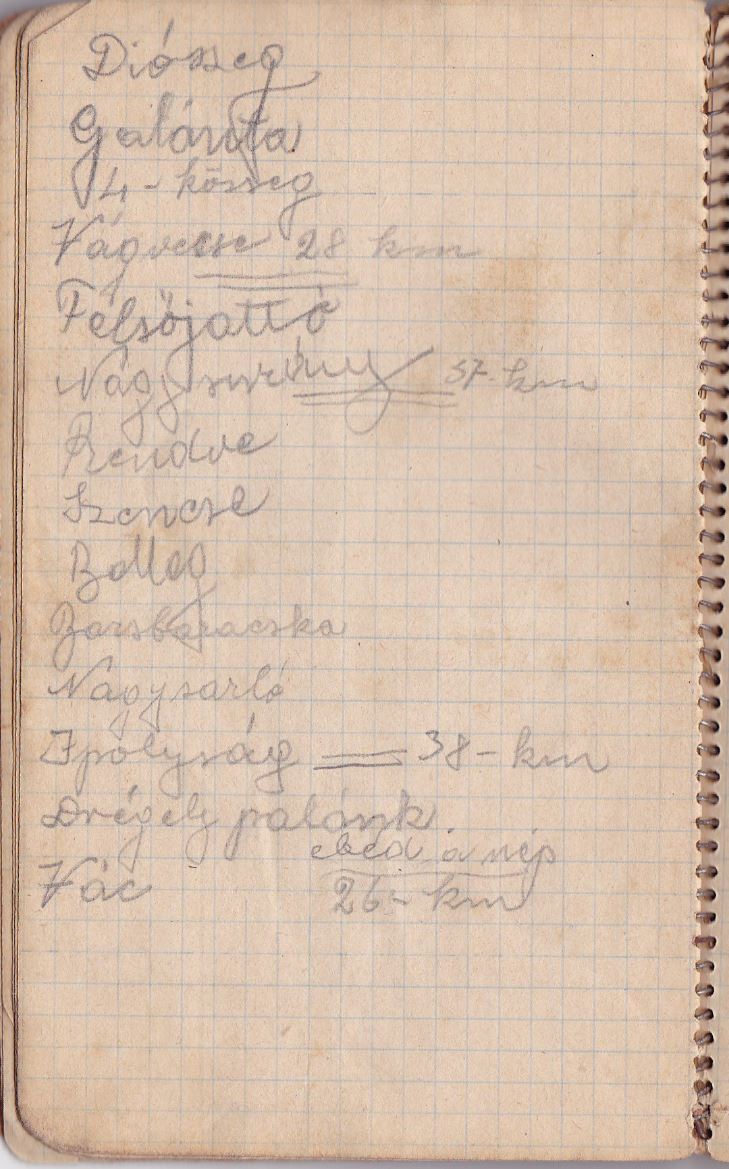 Diószeg
Galánta
4 - község
Vágvecse 28 km
Félsőjattó
Nagysurány 37 - km
Bendve
Szencse
Bélleg
Barsbaracska
Nagysarló
Ipolyság = 38 - km
Drégely palánk.
ebéd a nép
Vác 26 - km